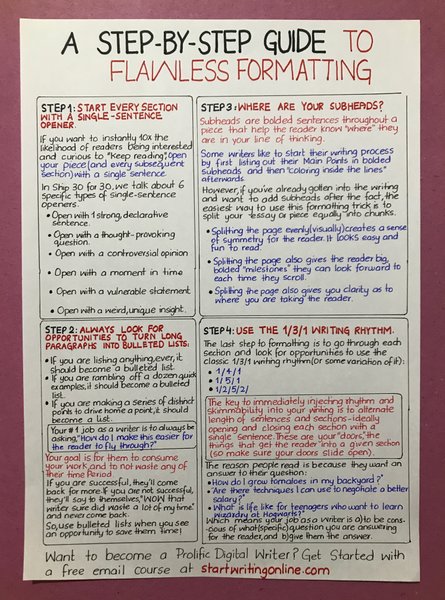 A STEP-BY-STEP GUIDE TO
FLAWLESS FORMATTING
STEP 1: START EVERY SECTION
WITH A SINGLE-SENTENCE
OPENER.
If you want to instantly 10x the
likelihood of readers being interested
and curious to "Keep reading", open
your piece (and every subsequent
section) with a single sentence.
In Ship 30 for 30, we talk about 6
specific types of single-sentence
openers.
• Open with 1 strong, declarative
sentence.
• Open with a thought-provoking
question.
• Open with a controversial opinion
• Open with a moment in time
• Open with a vulnerable statement
• Open with a weird, unique insight.
STEP 2: ALWAYS LOOK FOR
OPPORTUNITIES TO TURN LONG
PARAGRAPHS INTO BULLETED LISTS.
• If you are listing anything, ever, it
should become a bulleted list.
• If you are rambling off a dozen quick
examples, it should become a bulleted
list.
• If you are making a series of distinct
points to drive home a point, it should
become a list.
Your #1 job as a writer is to always be
asking, "How do I make this easier for
the reader to fly through?"
Your goal is for them to consume
your work, and to not waste any of
their time period
If you are successful, they'll come
back for more. If you are not, successful,
they'll say to themselves, "WOW that
writer sure did waste a lot of my time"
and never come back.
So, use bulleted lists when you see
an opportunity to save them time!
STEP 3: WHERE ARE YOUR SUBHEADS?
Subheads are bolded sentences throughout a
piece that help the reader know "where" they
are in your line of thinking.
Some writers like to start their writing process
by first listing out their Main Points in bolded
subheads and then "coloring inside the lines"
afterwards.
However, if you've already gotten into the writing
and want to add subheads after the fact, the
easiest way to use this formatting trick is to
split your essay or piece equally into chunks.
• Splitting the page evenly (visually) creates a sense
of symmetry for the reader. It looks easy and
fun to read.
• Splitting the page also gives the reader big,
bolded "milestones" they can look forward to
each time they scroll.
• Splitting the page also gives you clarity as to
where you are taking the reader.
STEP 4: USE THE 1/3/1 WRITING RHYTHM.
The last step to formatting is to go through each
section and look for opportunities to use the
classic 1/3/1 writing rhythm (or some variation of it):
• 1/4/1
• 1/5/1
• 1/2/5/2/1
The key to immediately injecting rhythm and
skimmability into your writing is to alternate
length of sentences and sections-ideally
opening and closing each section with a
single sentence. These are your "doors," the
things that get the reader into a given section
(so make sure your doors slide open).
The reason people read is because they want an
answer to their question:
• "How do I grow tomatoes in my backyard?"
• "Are there techniques I can use to negotiate a better
salary?"
• "What is life like for teenagers who want to learn
wizardry at Hogwarts?"
Which means your job as a writer is a) to be cons-
cious of what (specific) question you are answering
for the reader, and b) give them the answer.
Want to become a Prolific Digital Writer? Get Started with
a free email course at startwritingonline.com